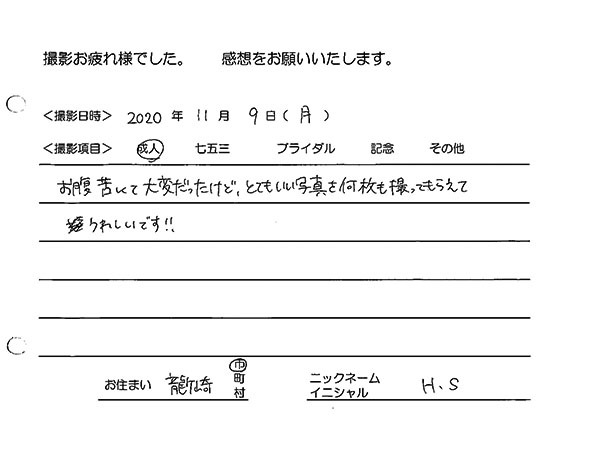 撮影お疲れ様でした。 感想をお願いいたします。
<撮影日時> 2020 年 11 月 9 日 ( 月 )
<撮影項目> 成人 七五三 ブライダル 記念 その他
お腹苦しくて大変だったけど、とてもいい写真を何枚も撮ってもらえて
うれしいです!!
お住まい 龍ケ崎 市 町 村
ニックネーム イニシャル H.S